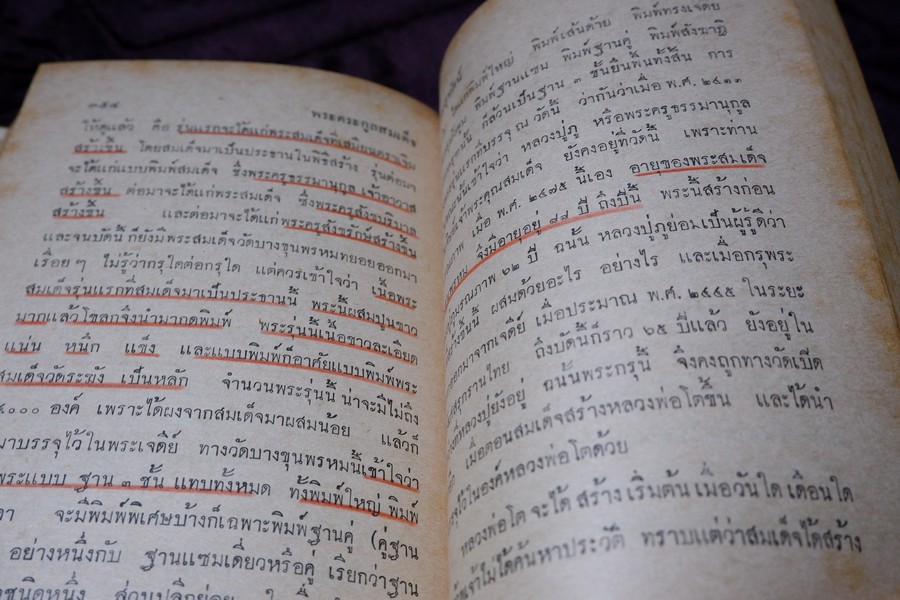 ๓๕๔
พระตระกูลสมเด็จ
ให้ดูแล้ว คือ รุ่นแรกจะได้แก่พระสมเด็จที่เสมียนตราเงิน
สร้างขึ้น โดยสมเด็จมาเป็นประธานในพิธีสร้าง รุ่นต่อมา
จะได้แก่แบบพิมพ์สมเด็จ ซึ่งพระครูธรรมานุกูล เจ้าอาวาส
สร้างขึ้น ต่อมาจะได้แก่พระสมเด็จ ซึ่งพระครูสังฆบริบาล
สร้างขึ้น และต่อมาจะได้แก่พระครูสังฆรักษ์สร้างขึ้น
และจนบัดนี้ ก็ยังมีพระสมเด็จวัดบางขุนพรหมทยอยออกมา
เรื่อยๆ ไม่รู้ว่ากรุใดต่อกรุใด แต่ควรเข้าใจว่า เนื้อพระ
สมเด็จรุ่นแรกที่สมเด็จมาเป็นประธานนี้ พระนี้ผสมปูนขาว
มากแล้วโขลกจึงนำมากดพิมพ์ พระรุ่นนี้เนื้อขาวละเอียด
แน่น หนึก แข็ง และแบบพิมพ์ก็อาศัยแบบพิมพ์พระ
สมเด็จวัดระฆัง เป็นหลัก จำนวนพระรุ่นนี้ น่าจะมีไม่ถึง
๔๐๐๐ องค์ เพราะได้ผงจากสมเด็จมาผสมน้อย แล้วก็
มาบรรจุไว้ในพระเจดีย์ ทางวัดบางขุนพรหมนี้เข้าใจว่า
พระแบบ ฐาน ๓ ชั้น แทบทั้งหมด ทั้งพิมพ์ใหญ่ พิมพ์
จะมีพิมพ์พิเศษบ้างก็เฉพาะพิมพ์ฐานคู่ (คู่ฐาน
อย่างหนึ่งกับ ฐานแซมเดี่ยวหรือคู่ เรียกว่าฐาน
ชนิดหนึ่ง ส่วนปลีกย่อย
พิมพ์ใหญ่ พิมพ์เส้นด้าย พิมพ์ทรงเจดีย์
พิมพ์ฐานแซม พิมพ์ฐานคู่ พิมพ์สังฆาฏิ
ก็ล้วนเป็นฐาน ๓ ชั้นยืนพื้นทั้งสิ้น การ
บรรจุ ณ วัดนี้ ว่ากันว่าเมื่อ พ.ศ. ๒๔๑๓
เข้าใจว่า หลวงปู่ภู หรือพระครูธรรมานุกูล
เจ้าพระคุณสมเด็จ ยังคงอยู่ที่วัดนี้ เพราะท่าน
ภาพ เมื่อ พ.ศ. ๒๔๗๕ นี้เอง อายุของพระสมเด็จ
พรหม จึงมีอายุอยู่ ๙๙ ปี ถึงปีนี้ พระนี้สร้างก่อน
มรณภาพ ๖๒ ปี ฉนั้น หลวงปู่ภูย่อมเป็นผู้รู้ดีว่า
สร้างขึ้นนี้ ผสมด้วยอะไร อย่างไร และเมื่อกรุพระ
ตกมาจากเจดีย์ เมื่อประมาณ พ.ศ. ๒๔๔๕ ในระยะ
กรานไทย ถึงบัดนี้ก็ราว ๖๕ ปีแล้ว ยังอยู่ใน
ที่หลวงปู่ยังอยู่ ฉนั้นพระกรุนี้ จึงคงถูกทางวัดเปิด
เมื่อตอนสมเด็จสร้างหลวงพ่อโตขึ้น และได้นำ
จุไว้ในองค์หลวงพ่อโตด้วย
หลวงพ่อโต จะได้ สร้าง เริ่มต้น เมื่อวันใด เดือนใด
เจ้าไม่ได้ค้นหาประวัติ ทราบแต่ว่าสมเด็จได้สร้าง